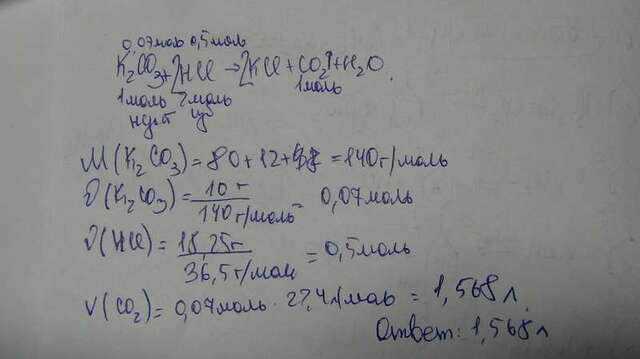 0,07моль 0,5моль
K₂CO₃+2HCl→2KCl+CO₂↑+H₂O.
1моль 2моль 1моль
нд-т из
M(K₂CO₃)=80+12+48=140г/моль
ν(K₂CO₃)=10г/140г/моль=0,07моль
ν(HCl)=18,25г/36,5г/моль=0,5моль
V(CO₂)=0,07моль·22,4л/моль=1,568л.
Ответ: 1,568л